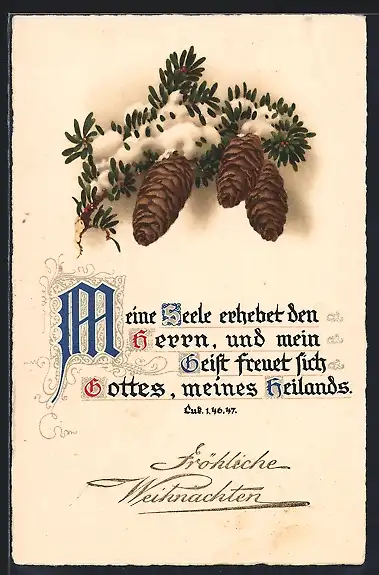 Meine Seele erhebet den
Herrn, und mein
Geist freuet sich
Gottes, meines Heilands.
Luk. 1,46,47.
Fröhliche
Weihnachten